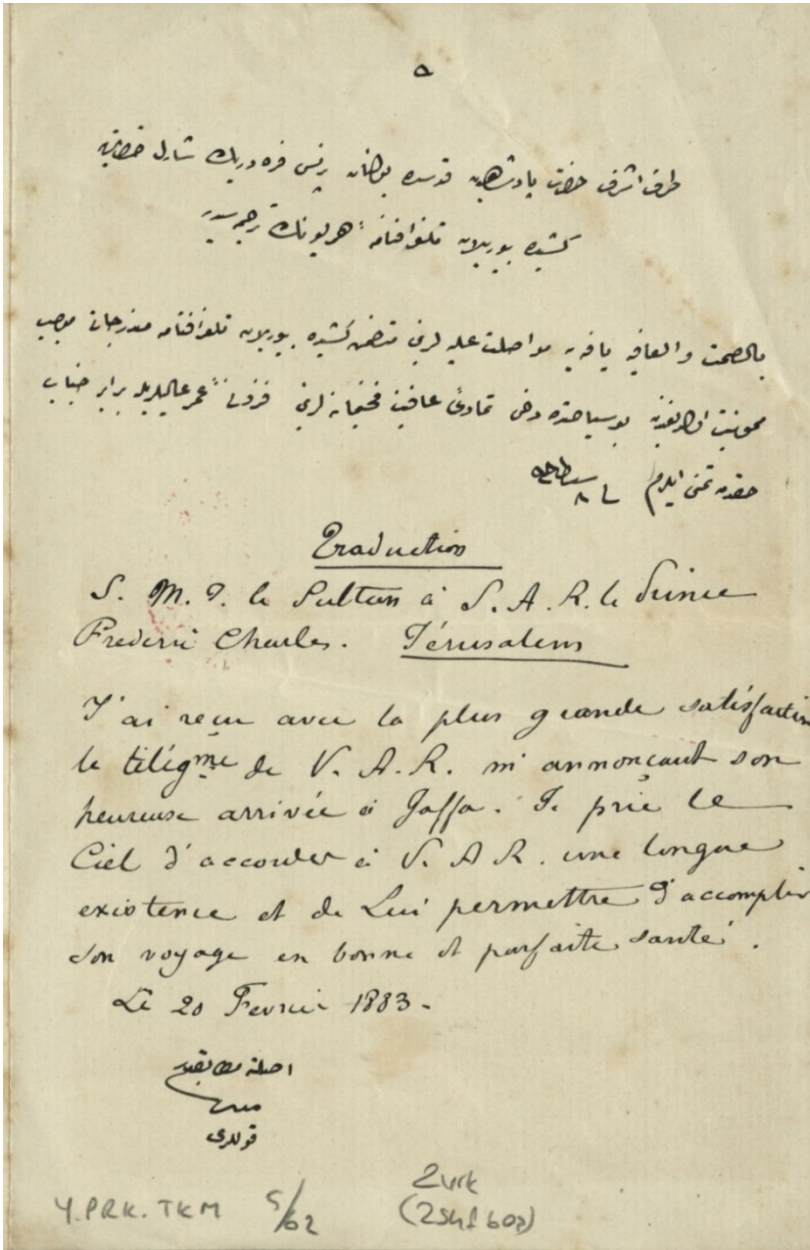 ٥
طرف اشرف حضرت پادشاهيدن قدسده بولنان پرنس فره دريك شارل حضرتلرينه
كشيده بيوريلان تلغرافنامه همايونك ترجمه سيدر
بالصحت والعافيه يافه يه مواصلت عليه لرينى متضمن كشيده بيوريلان تلغرافنامه مندرجاتى موجب
ممنونيت اولديغندن بو سياحتده دخى تمادئ عافيت فخيمانه لرينى عمر عاليلريله برابر جناب
حقدن تمنى ايلرم
Traduction
S. M. I. le Sultan à S. A. R. le Prince
Frederic Charles. Jérusalem
J'ai reçu avec la plus grande satisfaction
le télégme de V. A. R. m'annonçant son
heureuse arrivée à Jaffa. Je prie le
Ciel d'accorder à V. A R. une longue
existence et de Lui permettre d'accomplir
son voyage en bonne et parfaite santé.
Le 20 Fevrier 1883.
اصلنه مطابقدر
قوللرى
Y.PRK.TKM 5/62
2 vrk